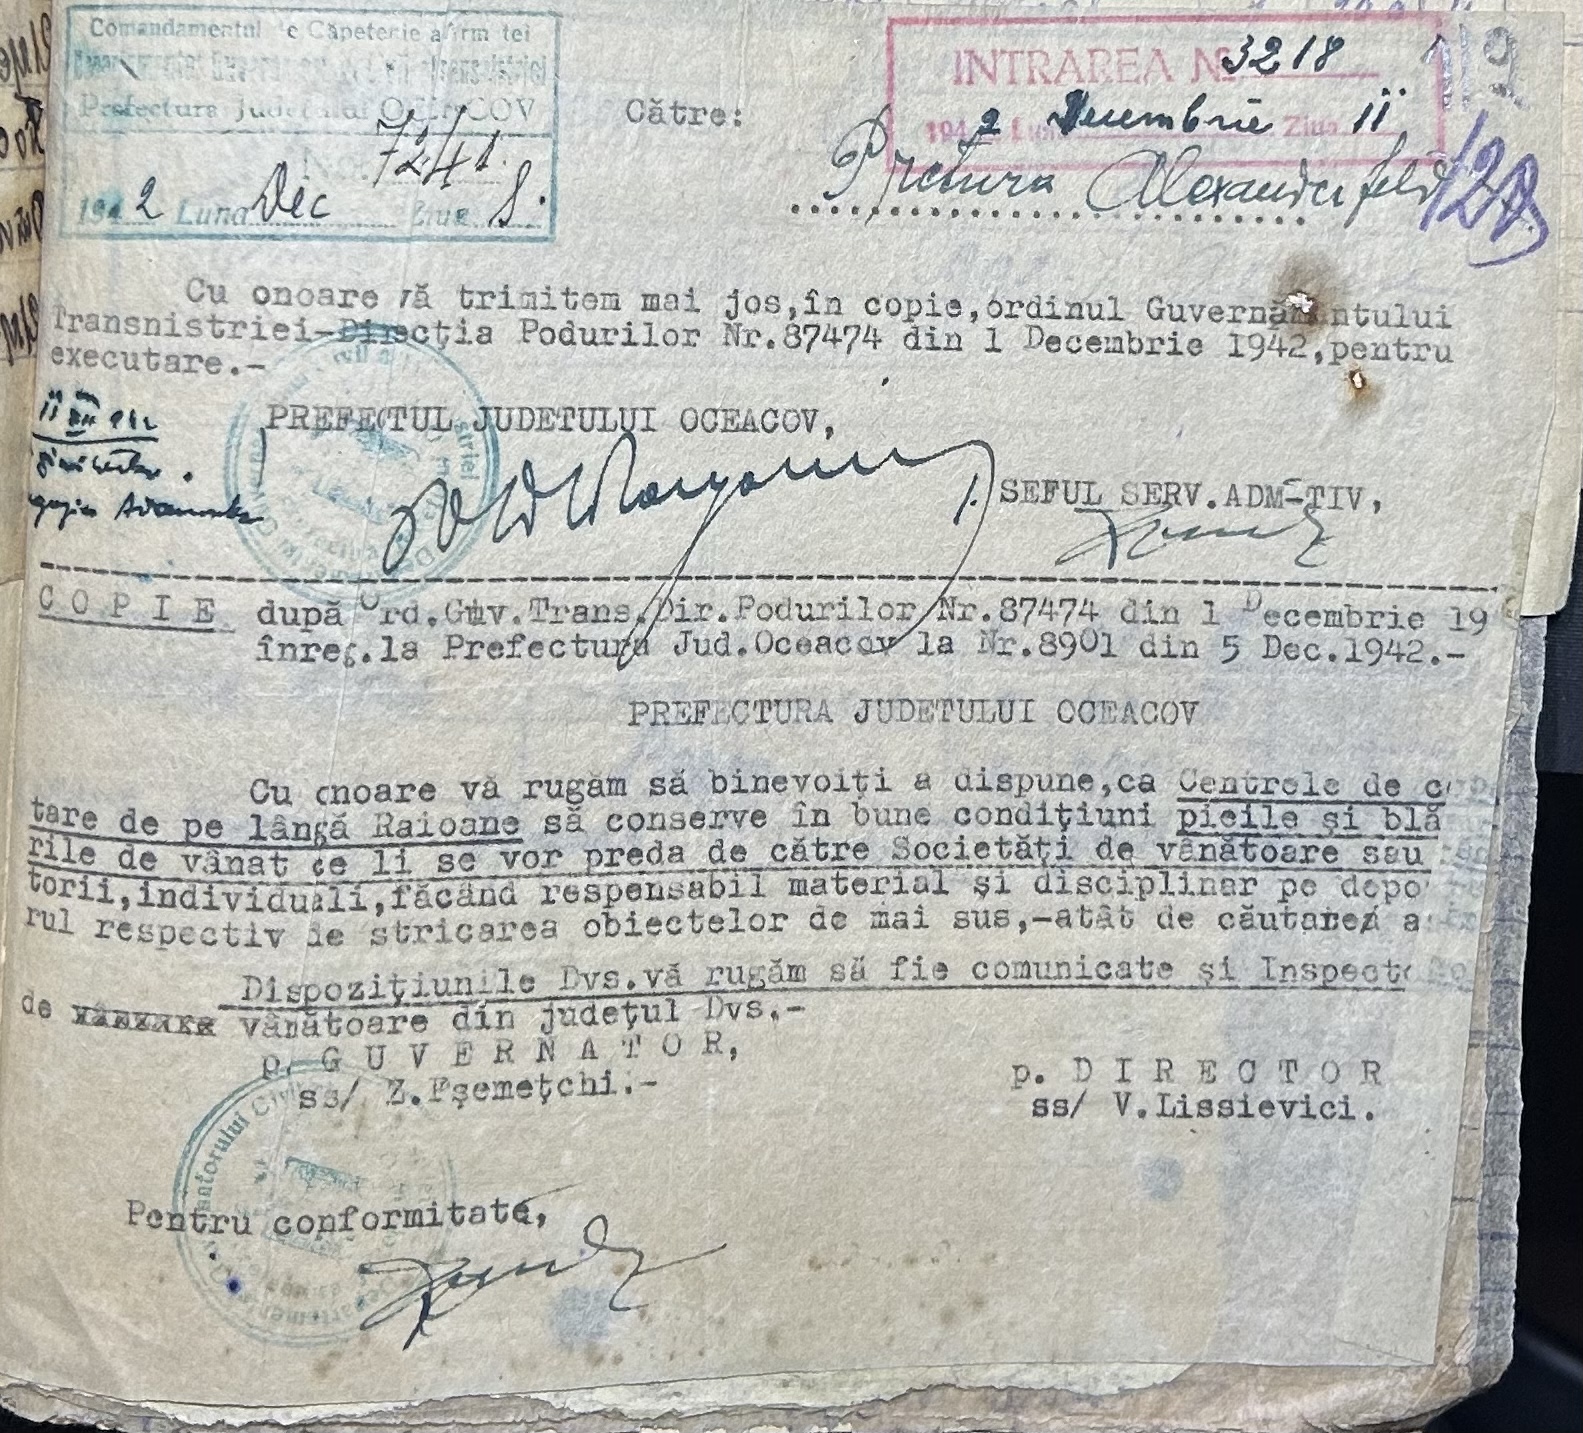 Comandamentul de Căpetenie
Prefectura Județului OCEACOV
No. 7241.
1942 Luna Dec Ziua 8.
Către:
INTRAREA No 3218
1942 Luna Decembrie Ziua 11
Pretura Alexanderfeld
119
120
Cu onoare vă trimitem mai jos,în copie,ordinul Guvernământului
Transnistriei-Direcția Podurilor Nr.87474 din 1 Decembrie 1942,pentru
executare.-
PREFECTUL JUDETULUI OCEACOV,
SEFUL SERV.ADM-TIV,
C O P I E după Ord.Guv.Trans.Dir.Podurilor Nr.87474 din 1 Decembrie 19
înreg.la Prefectura Jud.Oceacov la Nr.8901 din 5 Dec.1942.-
PREFECTURA JUDETULUI OCEACOV
Cu onoare vă rugăm să binevoiți a dispune,ca Centrele de
tare de pe lângă Raioane să conserve în bune condițiuni pieile și blă
rile de vânat ce li se vor preda de către Societăți de vânătoare sau
torii,individuali,făcând respensabil material și disciplinar pe depo
rul respectiv de stricarea obiectelor de mai sus,-atât de căutarea a
Dispozițiunile Dvs.vă rugăm să fie comunicate și Inspect
de vânătoare din județul Dvs.-
p. G U V E R N A T O R,
ss/ Z.Pșemețchi.-
p. D I R E C T O R
ss/ V.Lissievici.
Pentru conformitate,